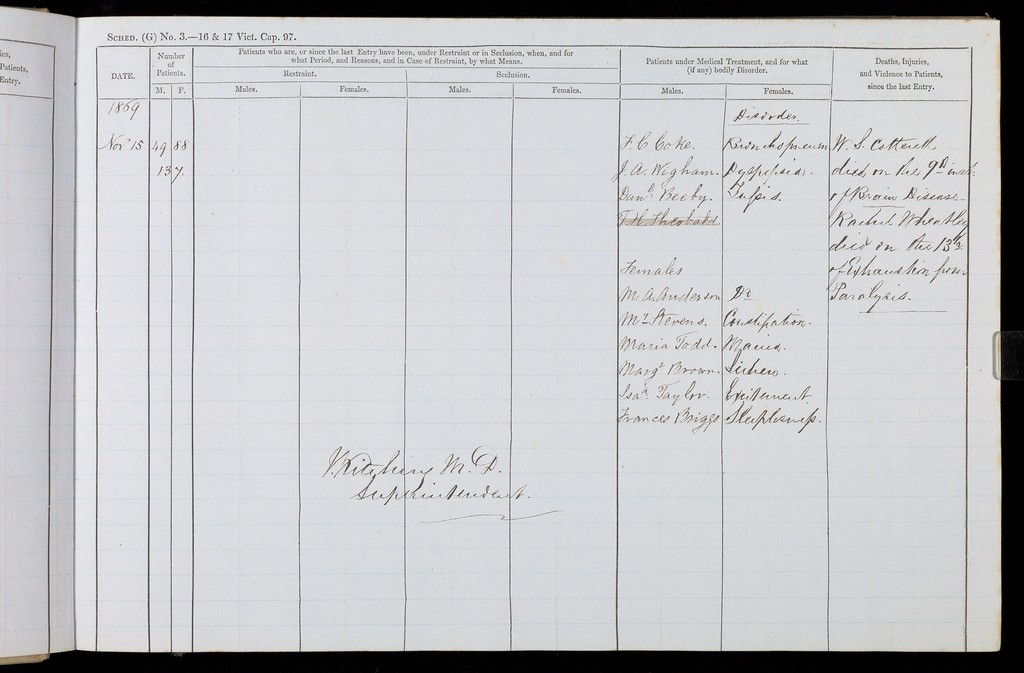 ies,
Patients,
Entry.
SCHED. (G) No. 3.—16 & 17 Vict. Cap. 97.
DATE.
Number of Patients.
M. F.
Patients who are, or since the last Entry have been, under Restraint or in Seclusion, when, and for
what Period, and Reasons, and in Case of Restraint, by what Means.
Restraint. Seclusion.
Males. Females. Males. Females.
Patients under Medical Treatment, and for what
(if any) bodily Disorder.
Males. Females.
Deaths, Injuries,
and Violence to Patients,
since the last Entry.
1869
Disorder.
Novr 15 49 88 F. C Coke. W. S. Cotterell
137. J. A. Wigham. Dyspepsia. died on the 9th inst.
Danl Beeby. of Brain Disease.
T. H. Theobald Rachel Wheatley
died on the 13th
Females of Exhaustion from
M. A. Anderson Do Paralysis.
Stevens. Constipation.
Maria Todd. Mania.
Margt Brown. Lichen.
Isaa Taylor. Excitement.
Frances Briggs Sleeplessness.
J. Kitching M. D.
Superintendent.